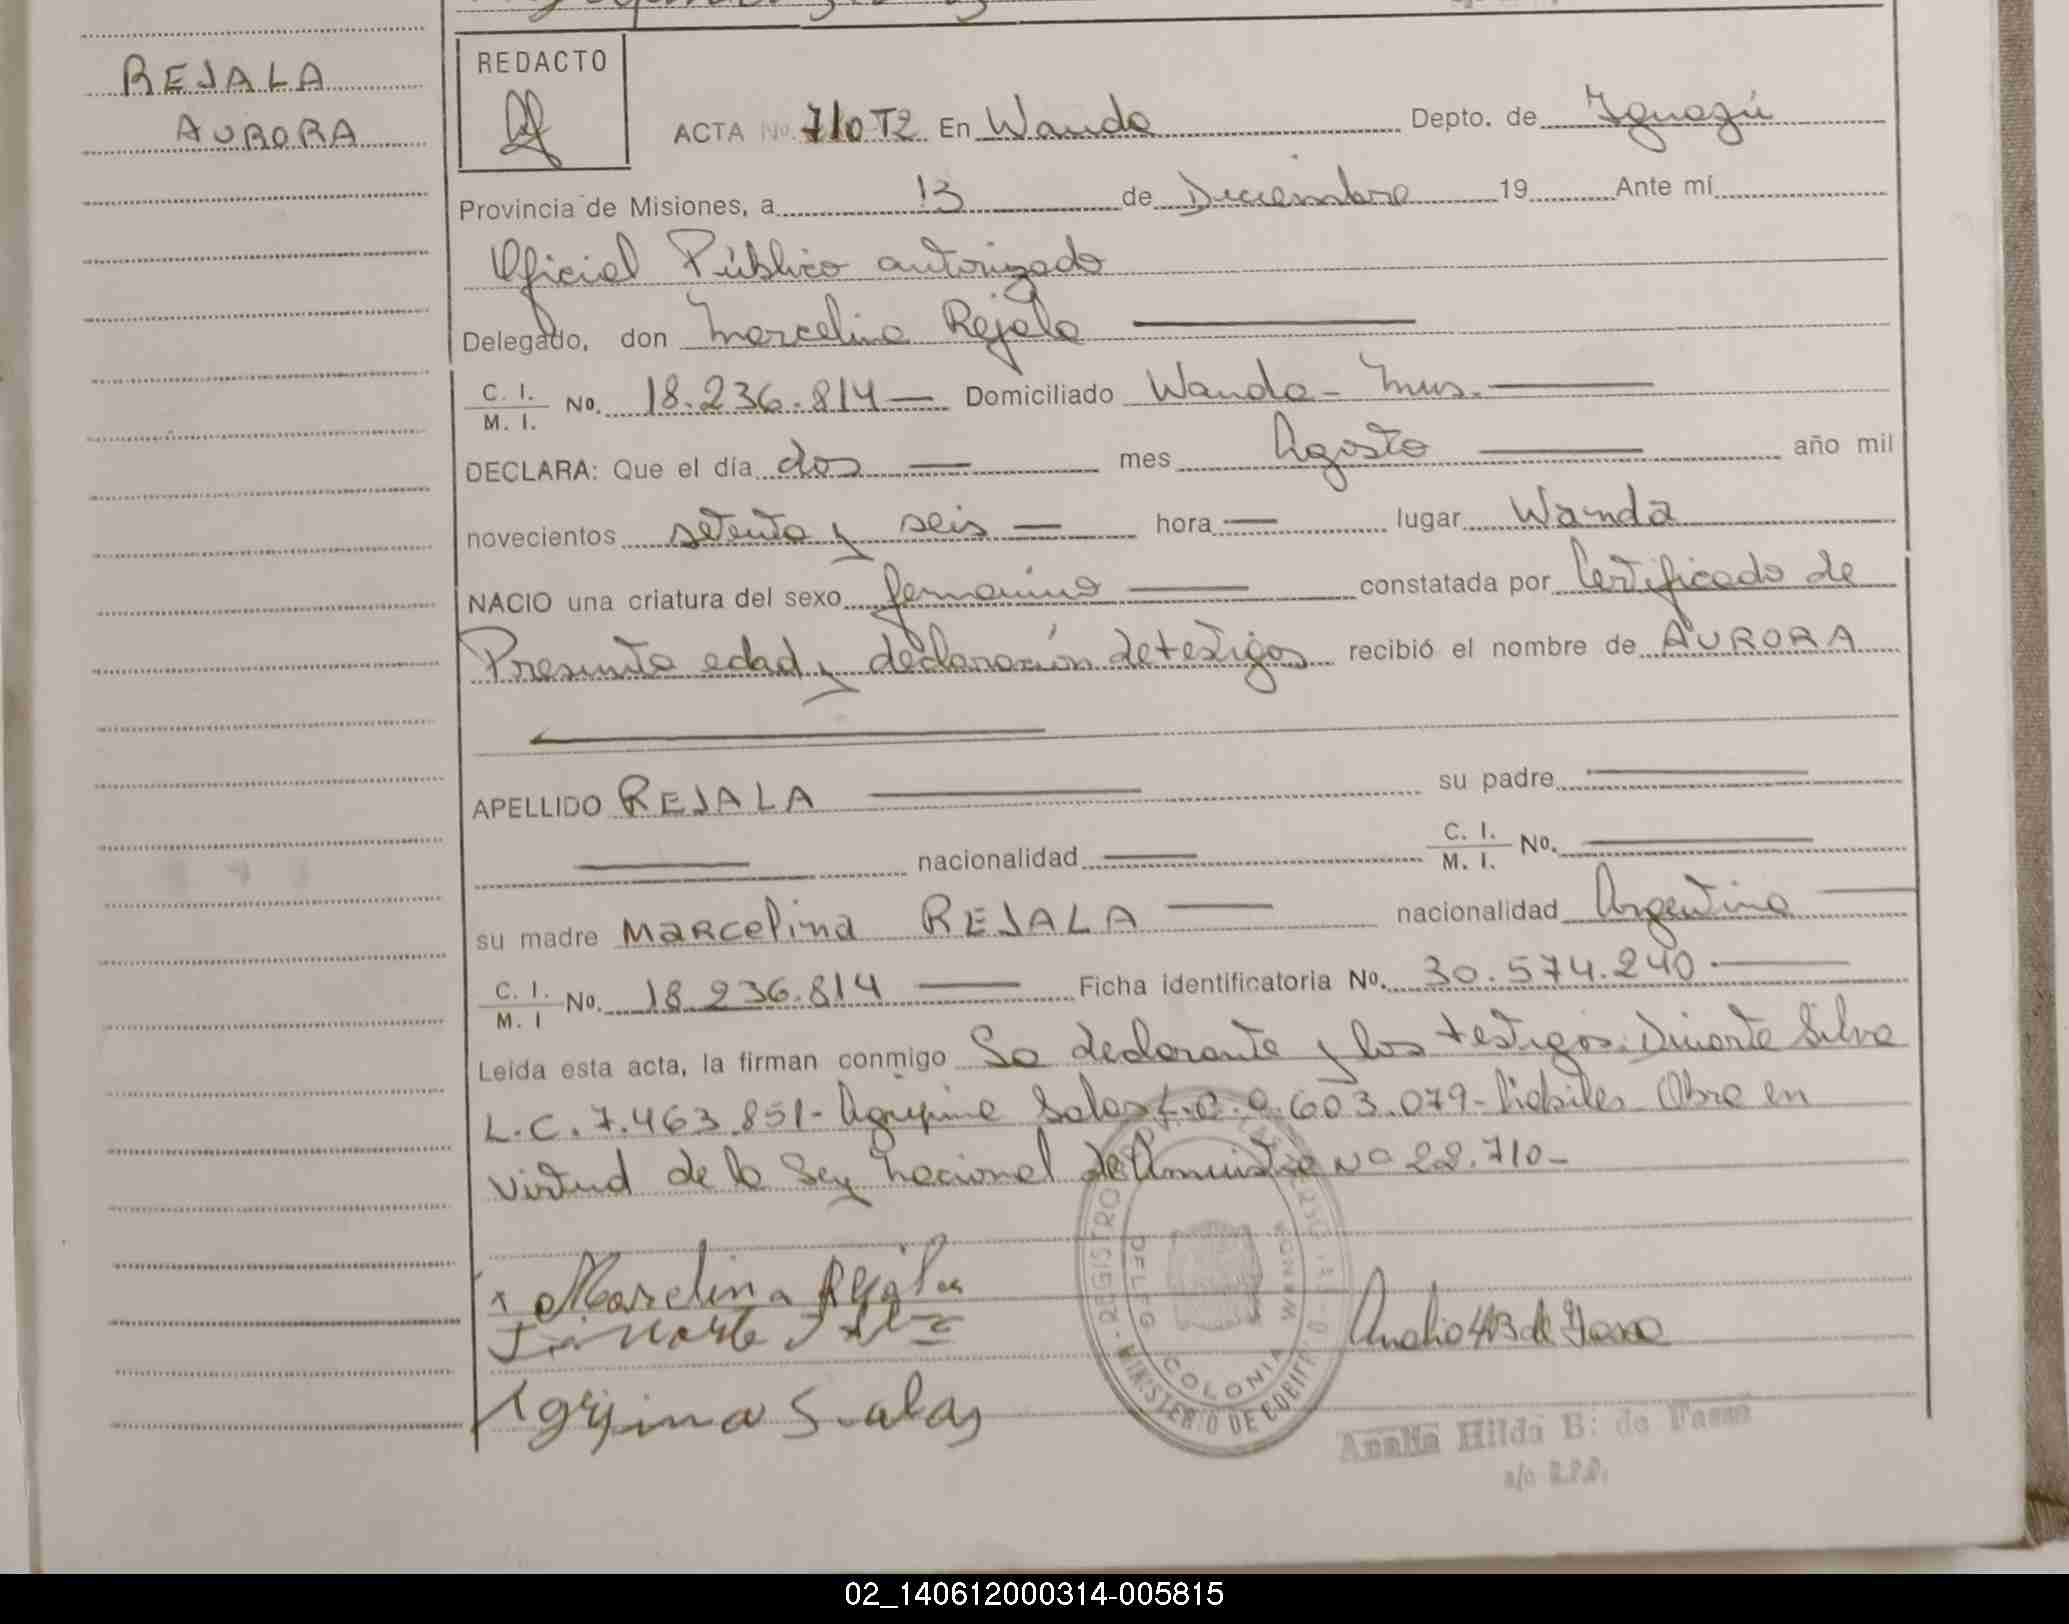 REJALA
AURORA
REDACTO
ACTA No. 710 T2 En Wanda Depto. de Iguazú
Provincia de Misiones, a 13 de Diciembre 19 Ante mí
Oficial Público autorizado
Delegado, don Marcelina Rejala
C. I. M. I. No. 18.236.814 Domiciliado Wanda - Mns.
DECLARA: Que el día dos mes Agosto año mil
novecientos setenta y seis hora lugar Wanda
NACIO una criatura del sexo femenino constatada por Certificado de
Presunta edad y declaración de testigos recibió el nombre de AURORA
APELLIDO REJALA su padre
nacionalidad C. I. M. I. No.
su madre Marcelina REJALA nacionalidad Argentina
C. I. M. I No. 18.236.814 Ficha identificatoria No. 30.574.240
Leída esta acta, la firman conmigo La declarante y los testigos: Duarte Silva
L.C. 7.463.851 - Agripina Salas L.C. 603.079 - hábiles Obra en
virtud de la Ley Nacional de Amnistía Nº 22.710 -
Marcelina Rejala
Agripina Salas
REGISTRO
DELEG
COLONIA WANDA
MINISTERIO DE GOBIERNO
Analia Hilda B. de
a/c R.P.D.
02_140612000314-005815